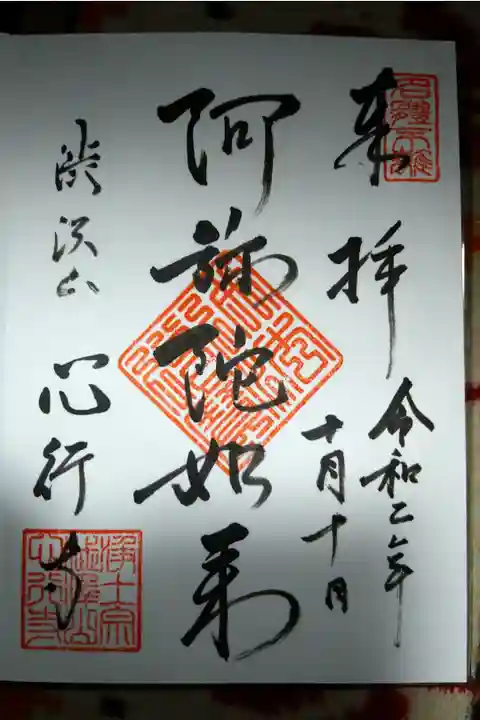 奉拝
令和二年
十月十日
阿弥陀如来
渋沢山 心行寺